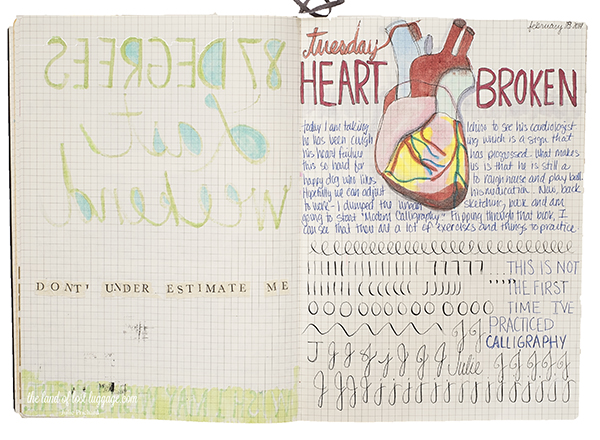 87 DEGREES
Last
weekend
DONT' UNDER ESTIMATE ME
the land of lost luggage.com
february 28 2018
tuesday
HEART BROKEN
today I am taking
to see his cardiologist
he has been cough ing which is a sign that
his heart failure has progressed. What makes
this so hard for us is that he is still a
happy dog who likes to rough house and play ball.
Hopefully we can adjust his medication. Now, back
to work - I dumped the urban sketching book and am
going to start "Modern Calligraphy." Flipping through that book, I
can see that there are a lot of exercises and things to practice
THIS IS NOT
THE FIRST
TIME I'VE
PRACTICED
CALLIGRAPHY
J J J J J J J J Julie J J J J J